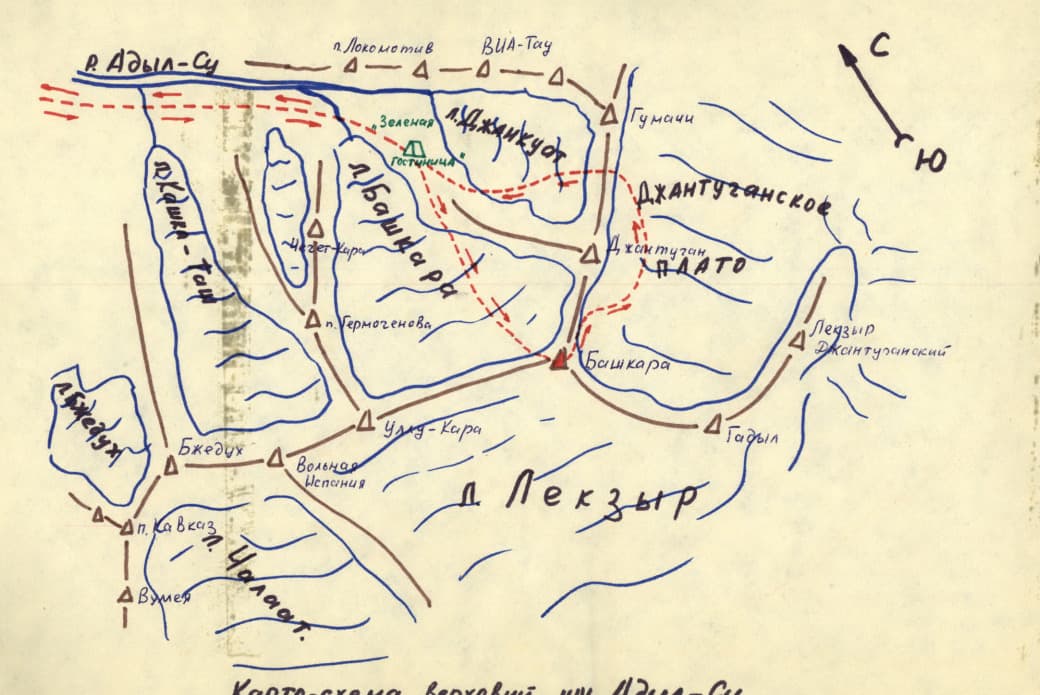 С
Ю
р. Адыл-Су
п. Локомотив
ВИА-Тау
Гумачи
„Зеленая
гостиница"
л. Джанкуат
ДЖАНТУГАНСКОЕ
ПЛАТО
л. Кашка-Таш
л. Башкара
Чегет-Кара
Джантуган
п. Гермогенова
Башкара
Лекзыр
Джантуганский
л. Бжедух
Уллу-Кара
Гадыл
Бжедух
Вольная
Испания
л. Лекзыр
п. Кавказ
л. Чалаат.
Вумея
Карта-схема верховий
Адыл-Су